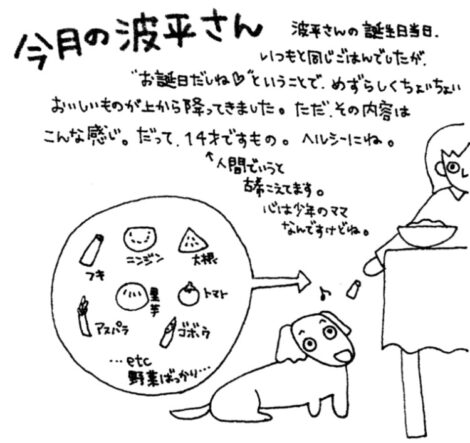 今月の波平さん
波平さんの誕生日当日。
いつもと同じごはんでしたが、
"お誕日だしね♡"ということで、めずらしくちょいちょい
おいしいものが上から降ってきました。ただ、その内容は
こんな感じ。だって、14才ですもの。ヘルシーにね。
↑人間でいうと
古希こえてます。
心は少年のママ
なんですけどね。
フキ
ニンジン
大根
里芋
トマト
アスパラ
ゴボウ
…etc
野菜ばっかり…
♪